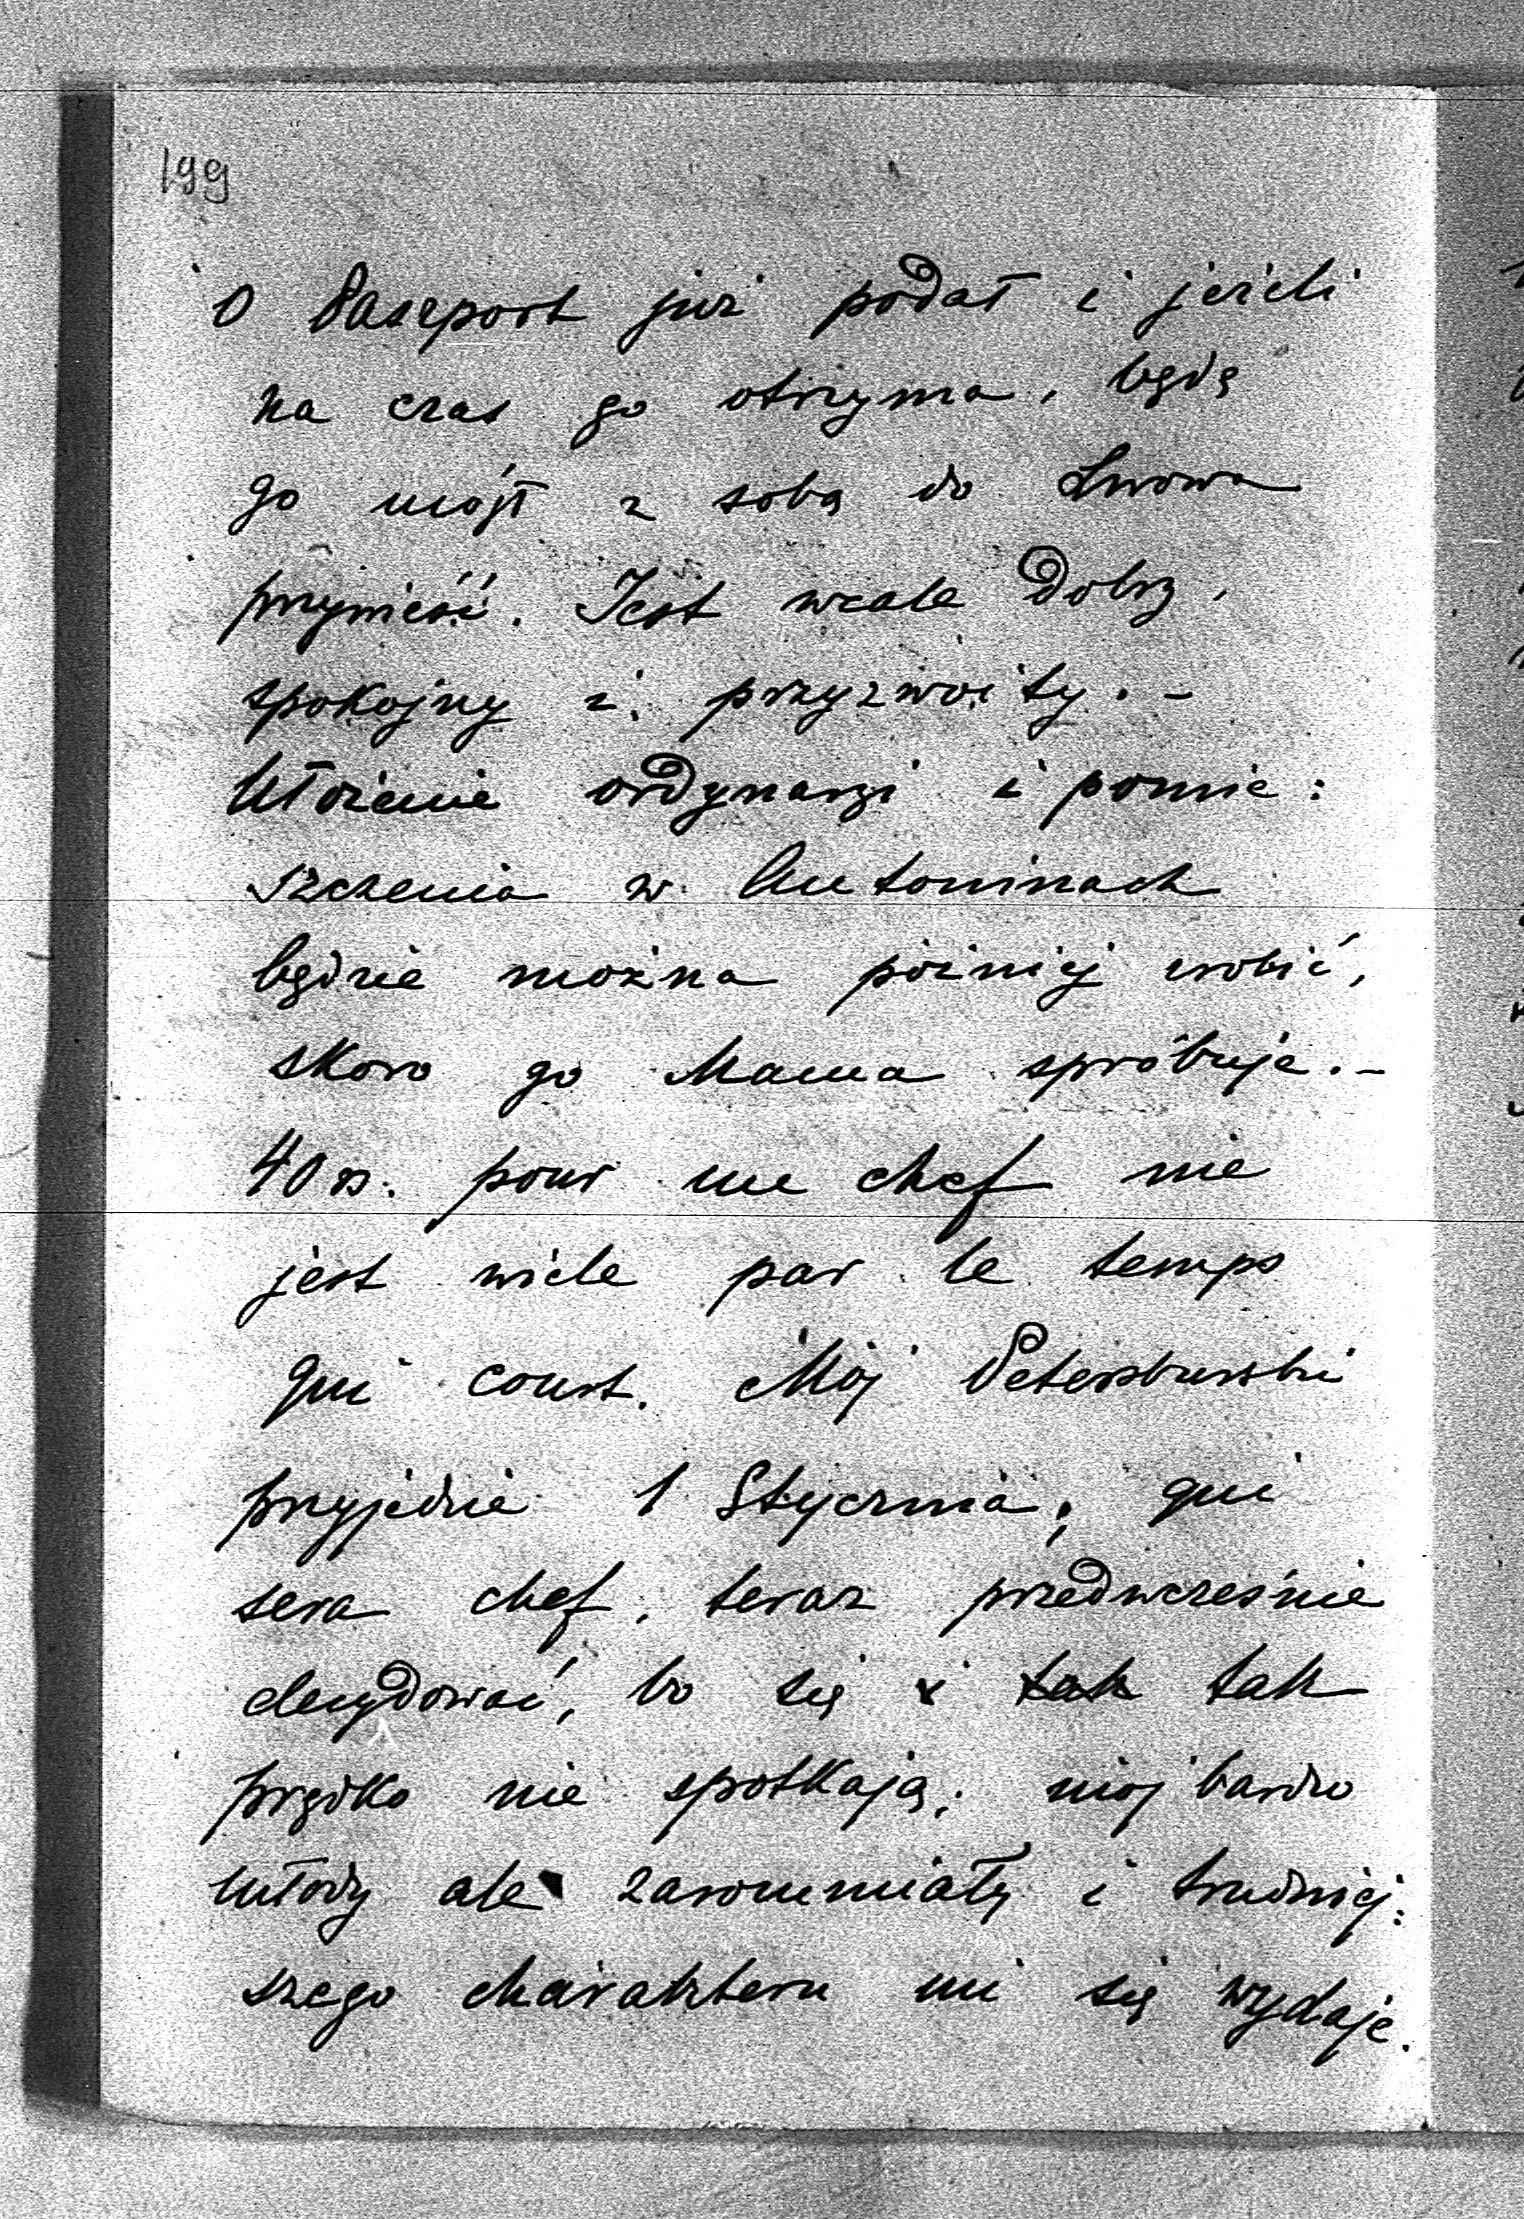 199
O Paszport już podał i jeżeli
na czas go otrzyma, będę
go mógł z sobą do Lwowa
przynieść. Jest wcale dobry,
spokojny i przyzwoity. –
Ułożenie ordynarji i pomie:
szczenia w Antoninach
będzie można później zrobić,
skoro go Mama spróbuje. –
40 rs. pour un chef nie
jest wiele par le temps
qui court. Mój Petersburski
przyjedzie 1 Stycznia; qui
sera chef, teraz przedwcześnie
decydować, bo się i tak tak
prędko nie spotkają; mój bardzo
młody ale zarozumiały i trudniej:
szego charakteru mi się wydaje.